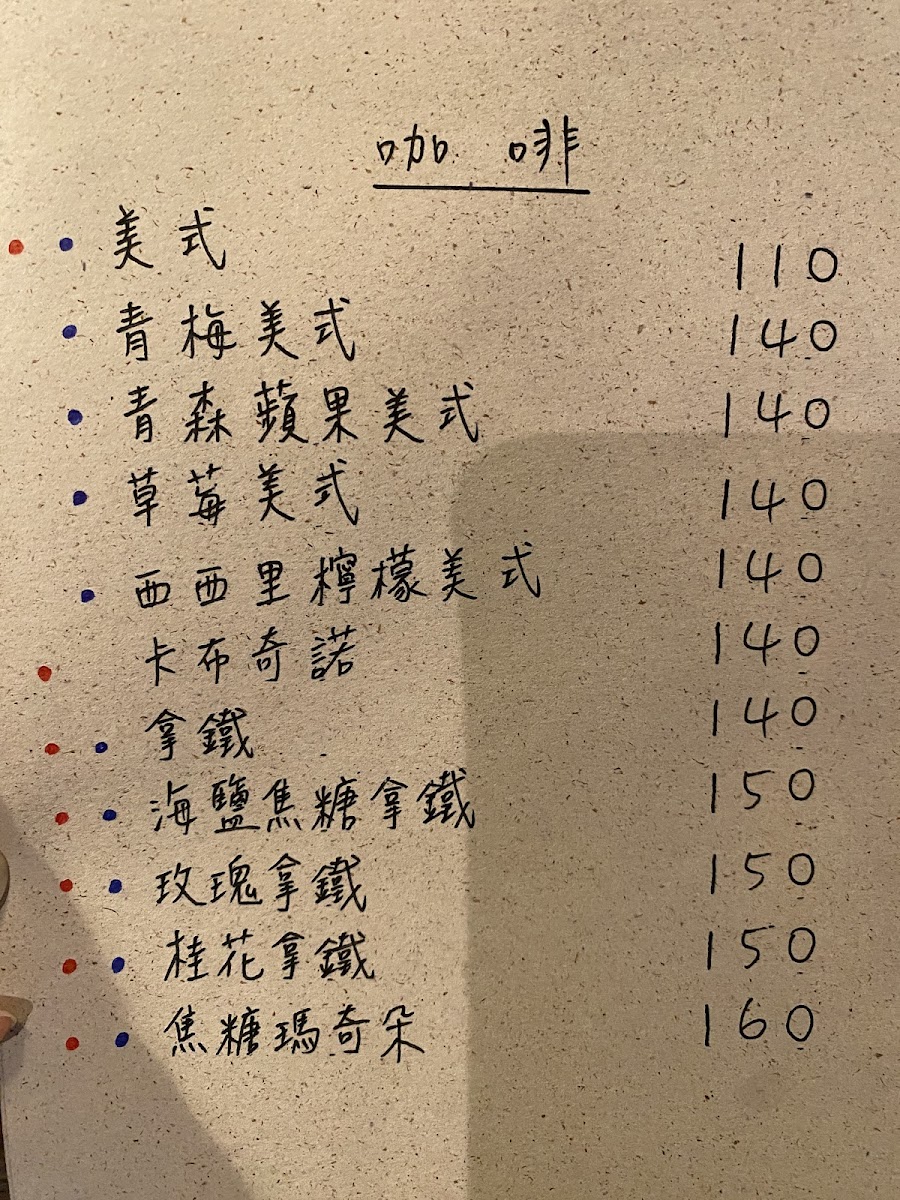 咖啡
美式 110
青梅美式 140
青森蘋果美式 140
草莓美式 140
西西里檸檬美式 140
卡布奇諾 140
拿鐵 140
海鹽焦糖拿鐵 150
玫瑰拿鐵 150
桂花拿鐵 150
焦糖瑪奇朵 160